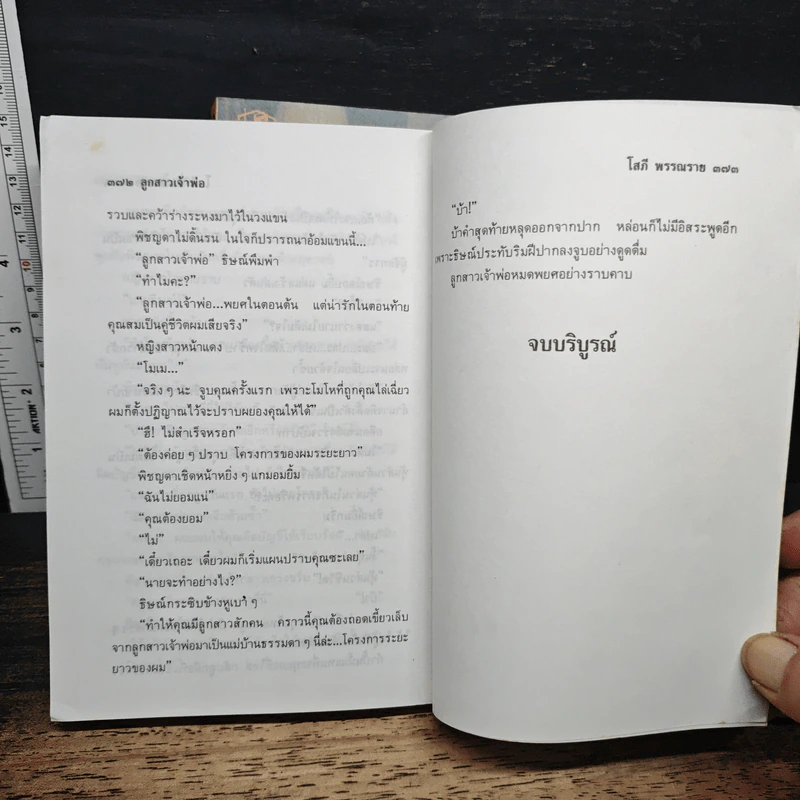 ๓๗๒ ลูกสาวเจ้าพ่อ
รวบและคว้าร่างระหงมาไว้ในวงแขน
พิชญดาไม่ดิ้นรน ในใจก็ปรารถนาอ้อมแขนนี้...
“ลูกสาวเจ้าพ่อ” ธิษณ์พึมพำ
“ทำไมคะ?”
“ลูกสาวเจ้าพ่อ...พยศในตอนต้น แต่น่ารักในตอนท้าย
คุณสมเป็นคู่ชีวิตผมเสียจริง”
หญิงสาวหน้าแดง
“โมเม...”
“จริง ๆ นะ จูบคุณครั้งแรก เพราะโมโหที่ถูกคุณไล่เฉี่ยว
ผมก็ตั้งปฏิญาณไว้จะปราบผยองคุณให้ได้”
“ฮึ! ไม่สำเร็จหรอก”
“ต้องค่อย ๆ ปราบ โครงการของผมระยะยาว”
พิชญดาเชิดหน้าหยิ่ง ๆ แกมอมยิ้ม
“ฉันไม่ยอมแน่”
“คุณต้องยอม”
“ไม่”
“เดี๋ยวเถอะ เดี๋ยวผมก็เริ่มแผนปราบคุณซะเลย”
“นายจะทำอย่างไง?”
ธิษณ์กระซิบข้างหูเบา ๆ
“ทำให้คุณมีลูกสาวสักคน คราวนี้คุณต้องถอดเขี้ยวเล็บ
จากลูกสาวเจ้าพ่อมาเป็นแม่บ้านธรรมดา ๆ นี่ล่ะ...โครงการระยะ
ยาวของผม”
โสภี พรรณราย ๓๗๓
“บ้า!”
บ้าคำสุดท้ายหลุดออกจากปาก หล่อนก็ไม่มีอิสระพูดอีก
เพราะธิษณ์ประทับริมฝีปากลงจูบอย่างดูดดื่ม
ลูกสาวเจ้าพ่อหมดพยศอย่างราบคาบ
จบบริบูรณ์